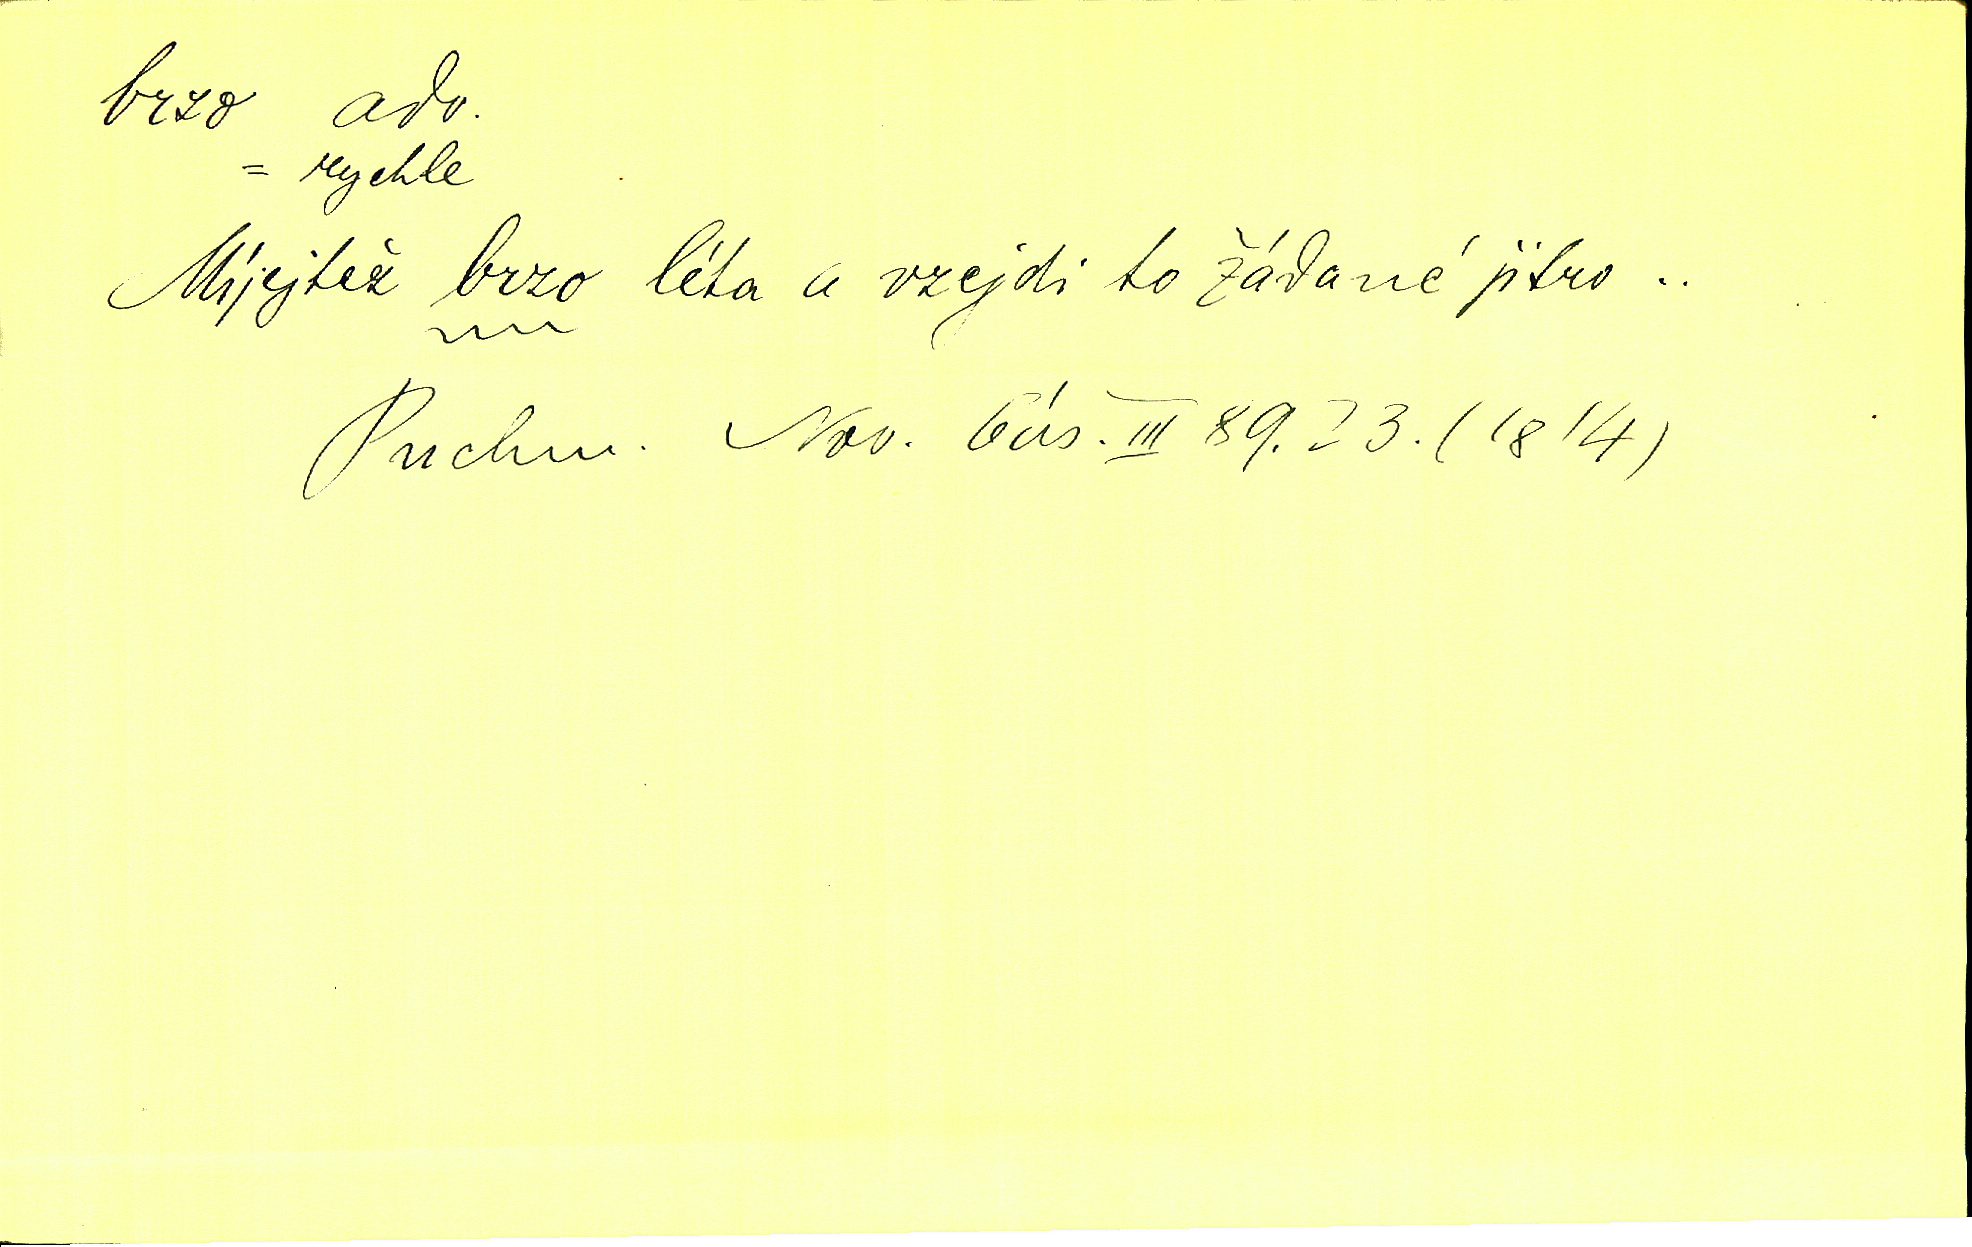 brzo adv.
= rychle
Míjejtež brzo léta a vzejdi to žádané jitro ..
Puchm. Nov. bás. III 89. 23. (1814)